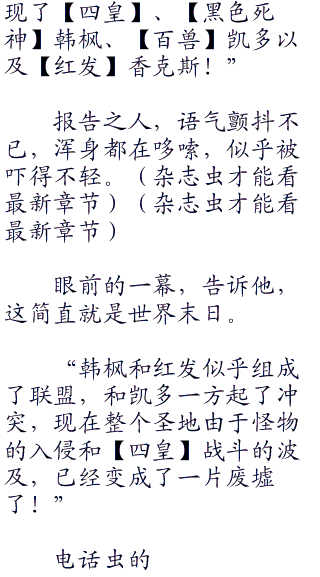 现了【四皇】、【黑色死
神】韩枫、【百兽】凯多以
及【红发】香克斯！”
报告之人，语气颤抖不
已，浑身都在哆嗦，似乎被
吓得不轻。（杂志虫才能看
最新章节）（杂志虫才能看
最新章节）
眼前的一幕，告诉他，
这简直就是世界末日。
“韩枫和红发似乎组成
了联盟，和凯多一方起了冲
突，现在整个圣地由于怪物
的入侵和【四皇】战斗的波
及，已经变成了一片废墟
了！”
电话虫的